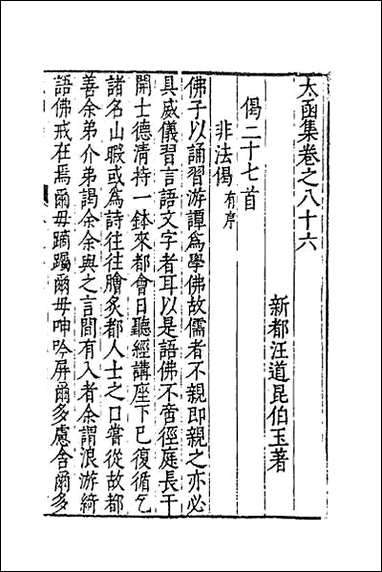 太函集卷之八十六
新都汪道昆伯玉著
偈二十七首
非法偈有序
佛子以誦習游譚為學佛故儒者不親即親之亦必
具威儀習言語文字者耳以是語佛不啻徑庭長干
開士德清持一鉢來都會日聽經講座下已復循乞
諸名山暇或為詩往往膾炙都人士之口嘗從故都
善余弟介弟謁余余與之言間有入者余謂浪游綺
語佛戒在焉爾毋蹢躅爾毋呻吟屏爾多慮含爾多